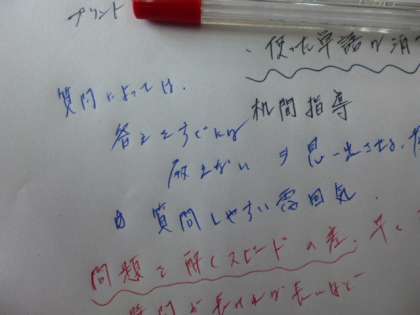 プリント
・使った単語が消
質問によっては、
机間指導
答えをすぐには
教えない ⇒ 思い出させる、
質問しやすい雰囲気
問題を解くスピードの差、早く
質問が